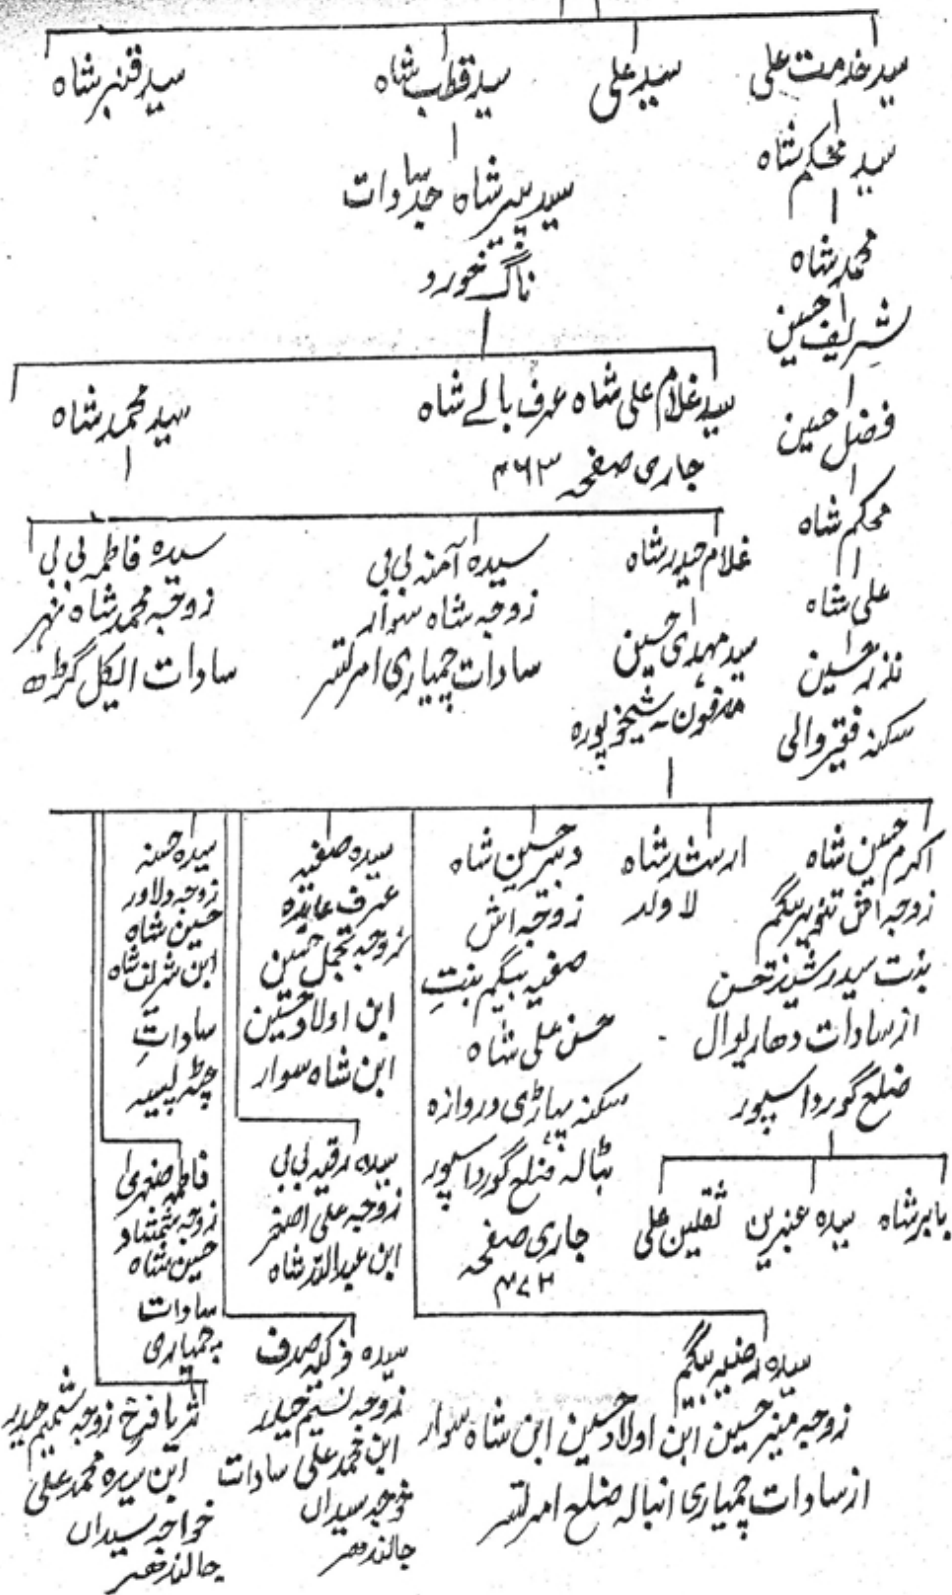 سید خدمت علی
سید علی
سید قطب شاہ
سید قنبر شاہ
سید محکم شاہ
محمد شاہ
شریف حسین
فضل حسین
محکم شاہ
علی شاہ
نذر حسین
سکنہ فقیر والی
سید ببر شاہ جد سادات
ناگ نخورد
سید غلام علی شاہ عرف بالے شاہ
جاری صفحہ ۴۶۳
سید محمد شاہ
غلام حیدر شاہ
سید مہدی حسین
مدفون شیخوپورہ
سیدہ آمنہ بی بی
زوجہ شاہ سوار
سادات چمیاری امرتسر
سیدہ فاطمہ بی بی
زوجہ محمد شاہ
سادات الیکل گڑھ
اکرم حسین شاہ
زوجہ اش بیگم
بنت سید رشید حسن
از سادات دھاریوال
ضلع گورداسپور
بابر شاہ
سیدہ عنبرین
ثقلین علی
ارشد شاہ
لاولد
حسین شاہ
زوجہ اش
صفیہ بیگم بنتِ
حسن علی شاہ
سکنہ پہاڑی دروازہ
بٹالہ ضلع گورداسپور
جاری صفحہ
۴۷۲
سیدہ صفیہ
عرف عابدہ
زوجہ تجمل حسین
ابن اولاد حسین
ابن شاہ سوار
سیدہ حسنہ
زوجہ دلاور
حسین شاہ
ابن شریف شاہ
ساداتِ
سیدہ رقیہ بی بی
زوجہ علی اصغر
ابن عبداللہ شاہ
فاطمہ صغریٰ
زوجہ شمشاد
حسین شاہ
سادات
چمیاری
سیدہ رضیہ بیگم
زوجہ منیر حسین ابن اولاد حسین ابن شاہ سوار
از سادات چمیاری انبالہ ضلع امرتسر
سیدہ صدف
زوجہ نسیم حیدر
ابن محمد علی سادات
خوجہ سیداں
جالندھر
ثریا فرخ زوجہ شمیم حیدر
ابن سید محمد علی
خواجہ سیداں
جالندھر